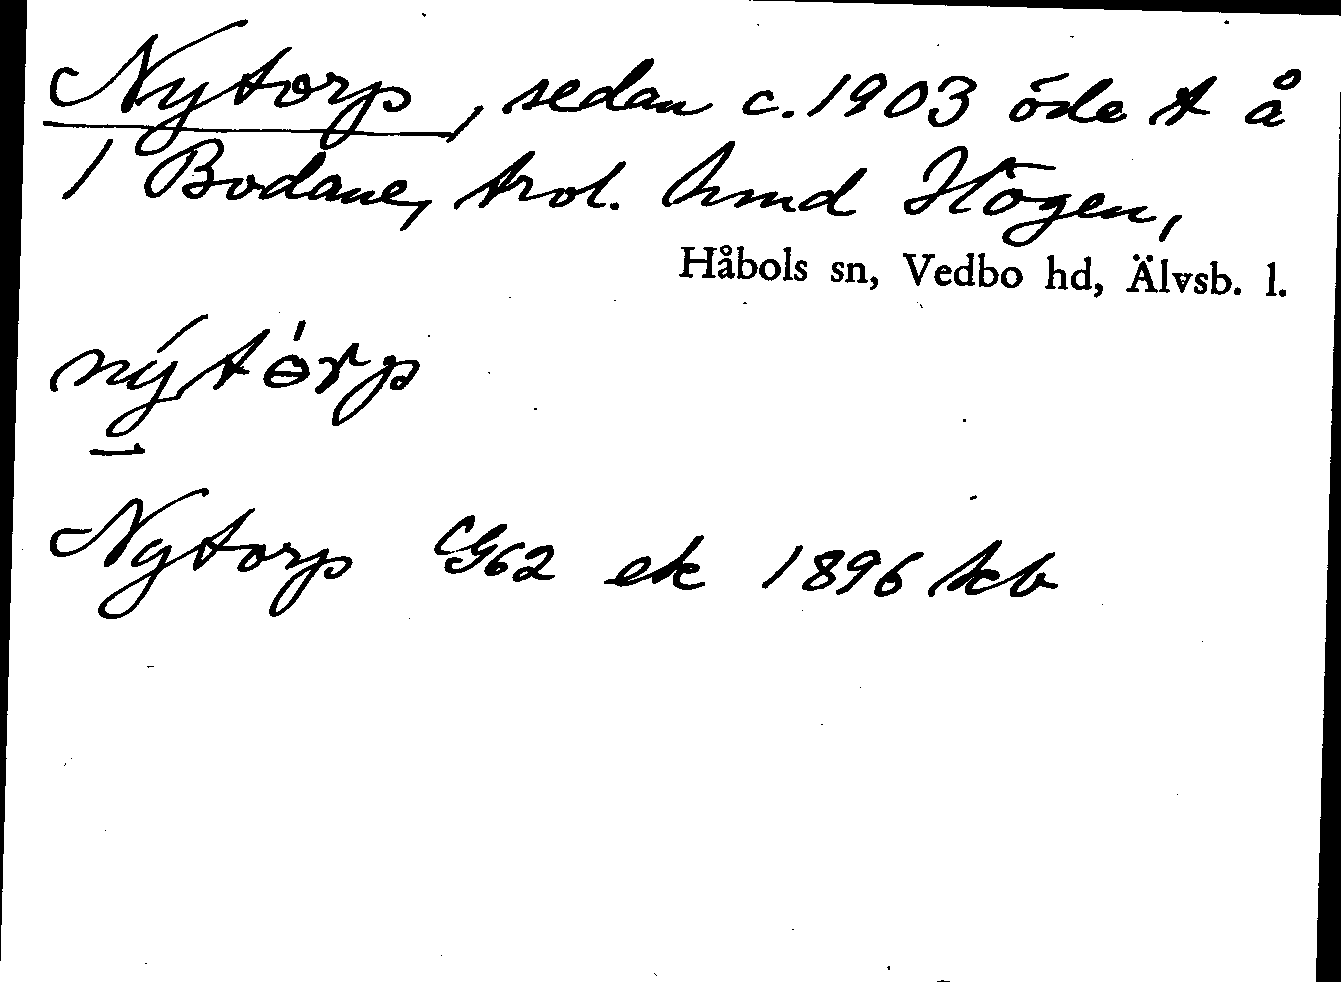 Nytorp, sedan c. 1903 öde t å
1 Bodane, trol. hmd Högen,
Håbols sn, Vedbo hd, Älvsb. l.
nýtɵ́rp
Nytorp G62 ek 1896 kb